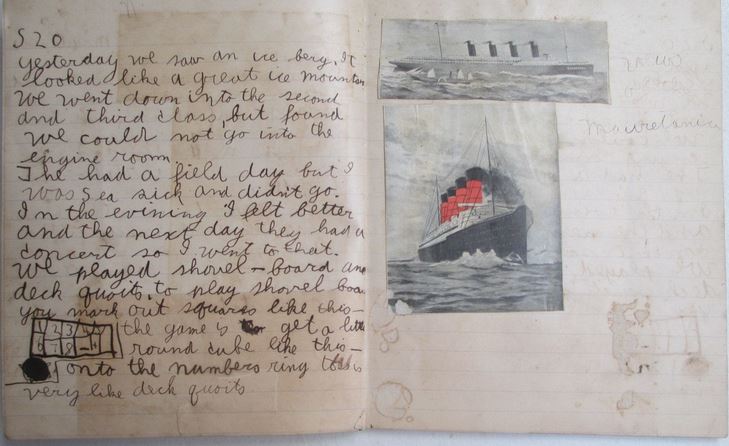 S 20
yesterday we saw an ice berg. It
looked like a great ice mountain
We went down into the second
and third class, but found
we could not go into the
engine room.
The had a field day but I
was sea sick and didn't go.
In the evining I felt better
and the next day they had a
concert so I went to that.
We played shovel-board and
deck quoits. to play shovel boa
you mark out squares like this-
the game is to get a little
round cube like this-
onto the numbers ring toss is
very like deck quoits
Mauretania